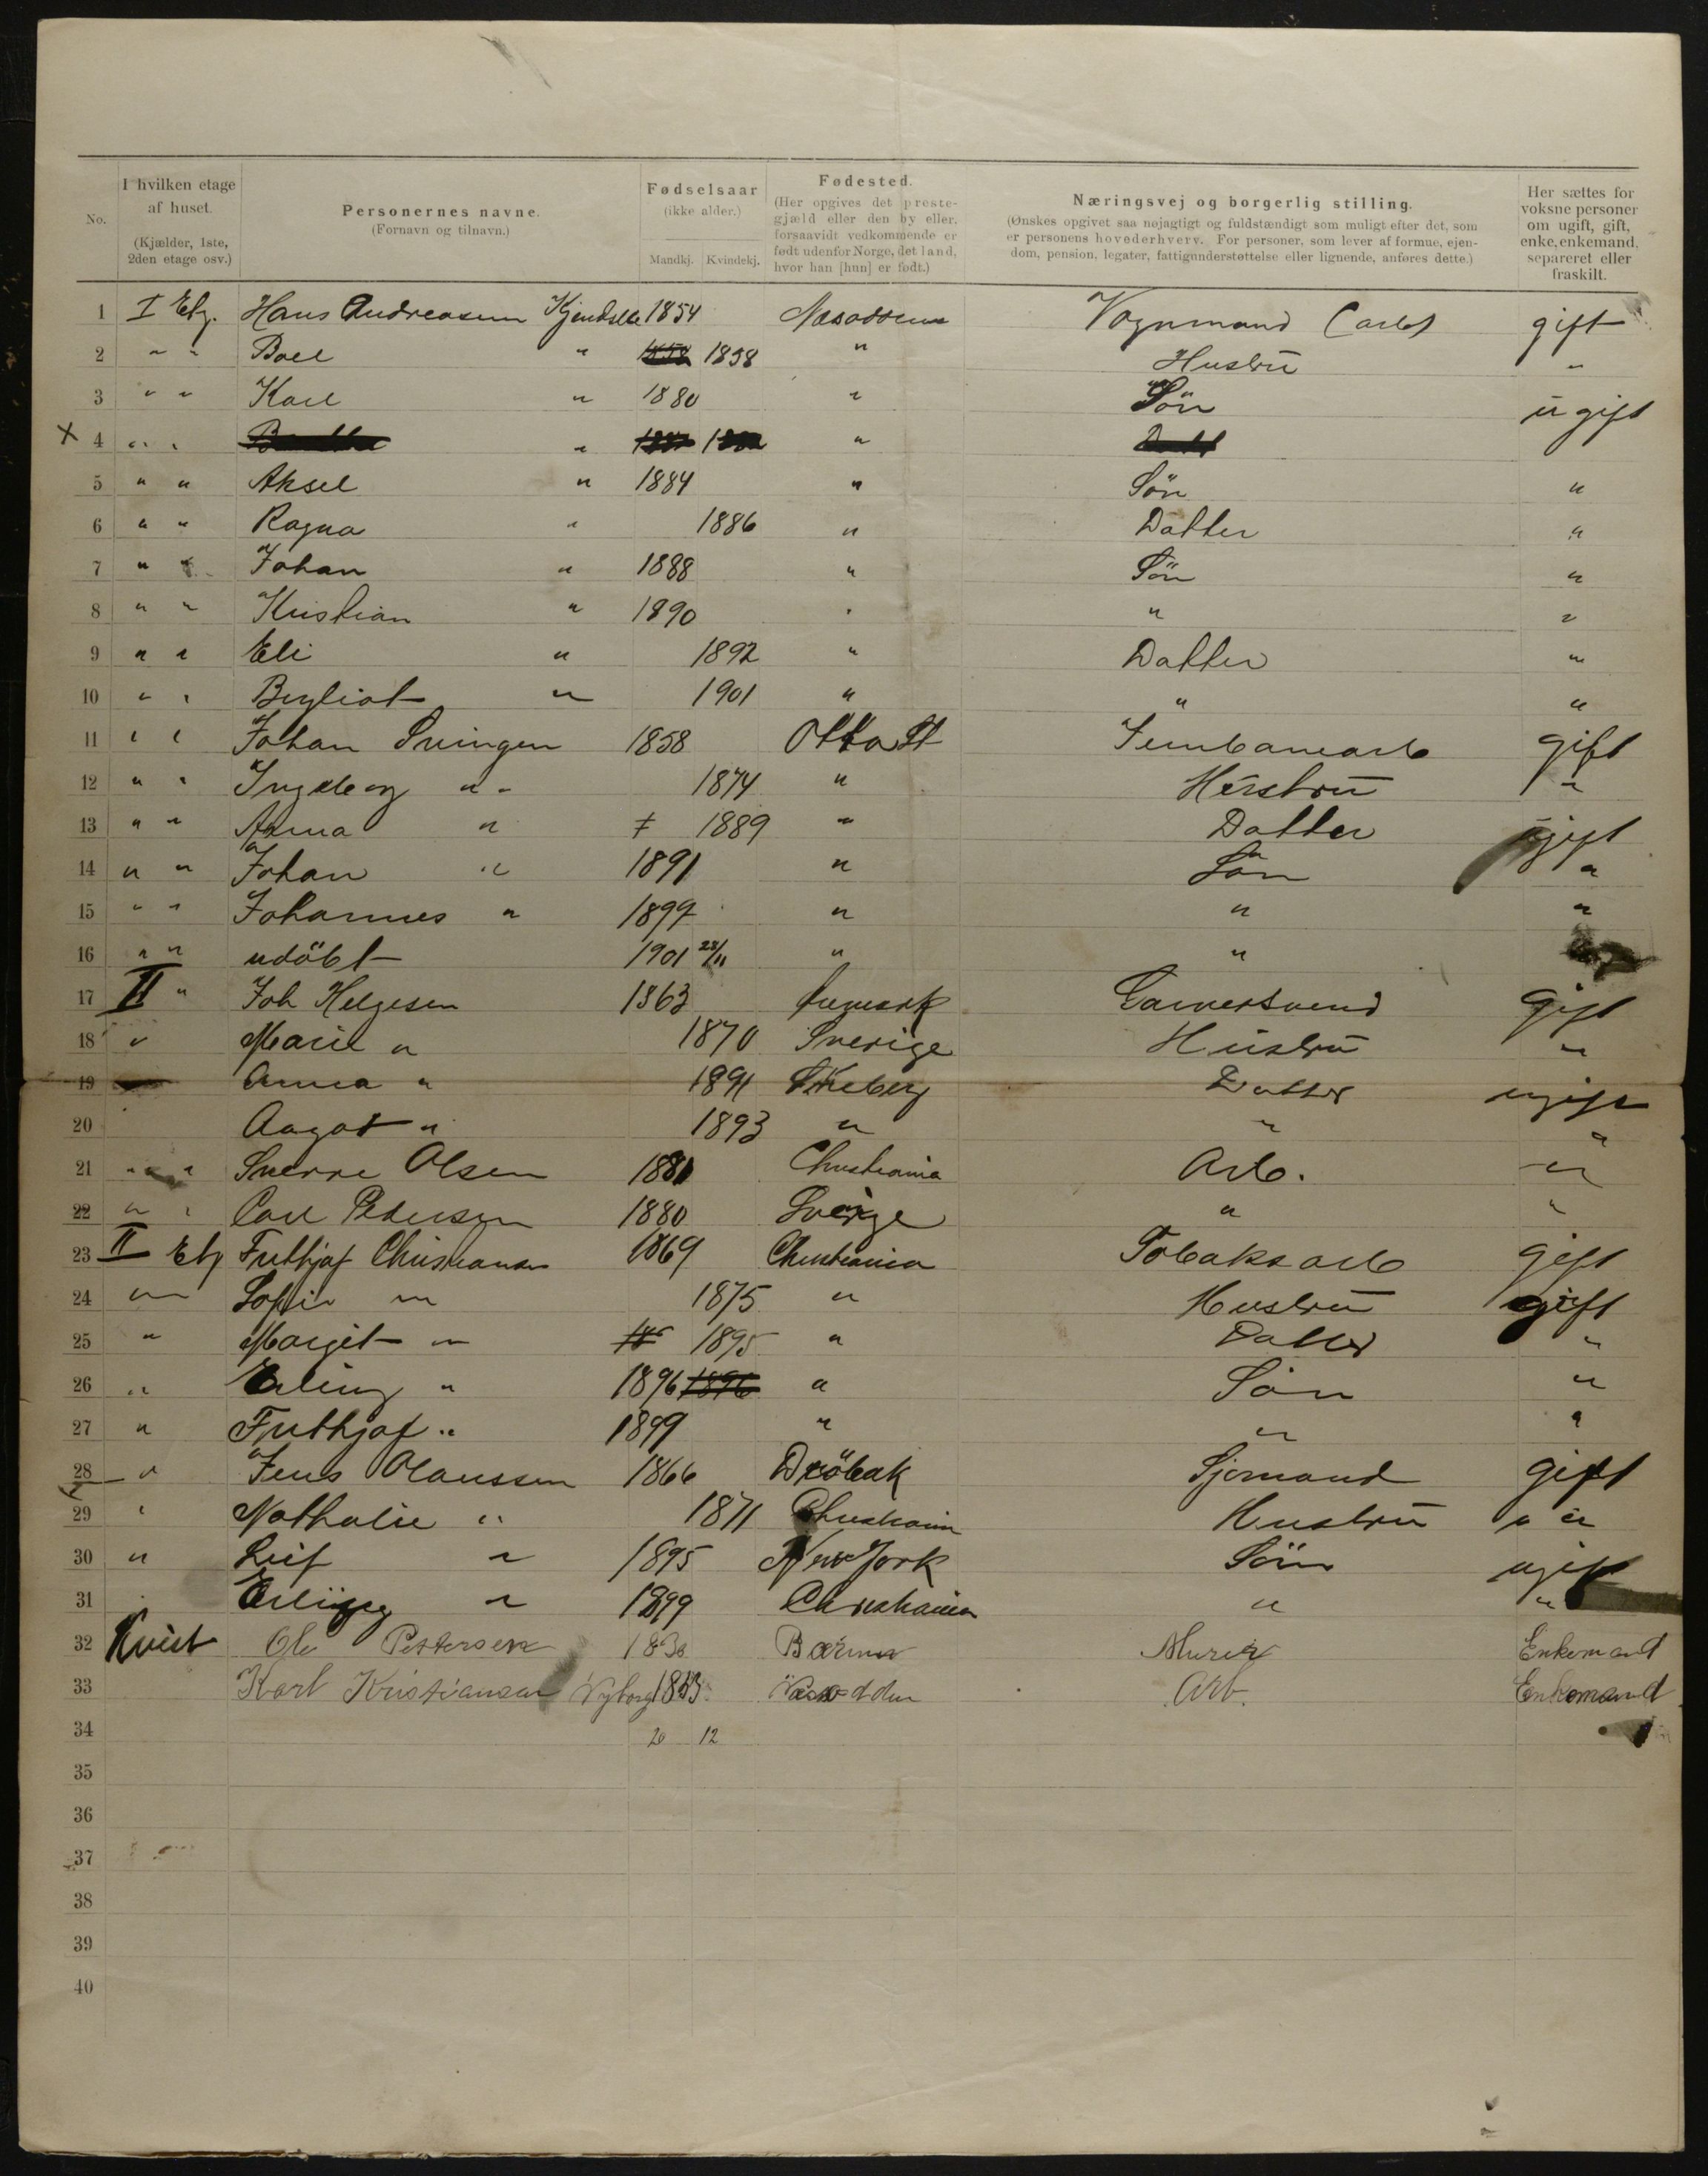 No.
I hvilken etage af huset. (Kjælder, 1ste, 2den etage osv.)
Personernes navne. (Fornavn og tilnavn.)
Fødselsaar (ikke alder.) Mandkj. Kvindekj.
Fødested. (Her opgives det prestegjæld eller den by eller, forsaavidt vedkommende er født udenfor Norge, det land, hvor han [hun] er født.)
Næringsvej og borgerlig stilling. (Ønskes opgivet saa nøjagtigt og fuldstændigt som muligt efter det, som er personens hovederhverv. For personer, som lever af formue, ejendom, pension, legater, fattigunderstøttelse eller lignende, anføres dette.)
Her sættes for voksne personer om ugift, gift, enke, enkemand, separeret eller fraskilt.
1 I Etg. Hans Andreasen 1854 Vognmand gift
2 " " " 1858 " Hustrü "
3 " " Karl " 1880 " Sön ügift
X 4 " " " "
5 " " Aksel " 1884 " Sön "
6 " " Ragna " 1886 " Datter "
7 " " Johan " 1888 " Sön "
8 " " Kristian " 1890 " " "
9 " " Eli " 1892 " Datter "
10 " " " 1901 " " "
11 " " Johan Svingen 1858 Otta St gift
12 " " " " 1874 " Hüstrü "
13 " " Anna " 1889 " Datter ügift
14 " " Johan " 1891 " Sön "
15 " " Johannes " " " "
16 " " udöbt 1901 "
17 II " Joh Helgesen 1863 Garversvend gift
18 " Marie " 1870 Sverige Hüstrü "
19 Anna " 1891 Datter ugift
20 Aagot " 1893 " " "
21 " " Sverre Olsen 1881 Christiania Arb. "
22 " " Carl Pedersen 1880 Sverige " "
23 II Etg Frithjof Christiansen 1869 Christiania Tobaksarb gift
24 " Sofie " 1875 " Hustrü gift
25 " Margit " 1895 " Datter "
26 " Erling " 1896 1896 " Sön "
27 " Frithjof " 1899 " " "
28 " Jens Olaussen 1866 Dröbak Sjömand gift
29 " Nathalie " 1871 Christiania Hustrü " "
30 " Leif " 1895 New York Sön ugift
31 Erling " 1899 Christiania " "
32 Kvist Ole Pettersen Murer Enkemand
33 Karl Kristiansen Nyborg Arb. Enkemand
34 20 12
35
36
37
38
39
40